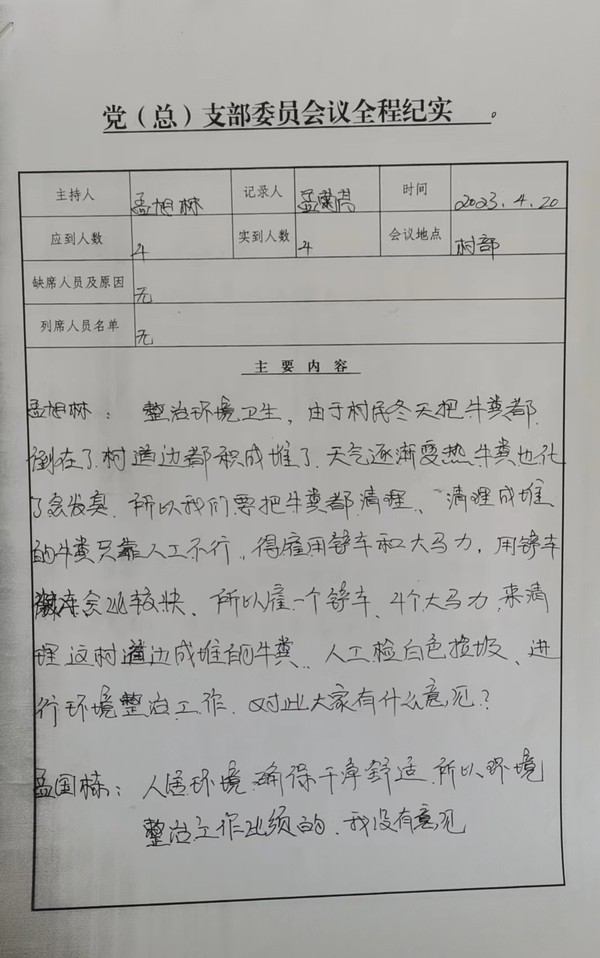 党（总）支部委员会议全程纪实
主持人 孟旭林 记录人 孟 时间 2023.4.20
应到人数 4 实到人数 4 会议地点 村部
缺席人员及原因 无
列席人员名单 无
主要内容
孟旭林：整治环境卫生，由于村民冬天把牛粪都
倒在了村道边都积成堆了.天气逐渐变热牛粪也化
了会发臭.所以我们要把牛粪都清理、清理成堆
的牛粪只靠人工不行.得雇用铲车和大马力，用铲车
会比较快、所以雇一个铲车、4个大马力来清
理这村道边成堆的牛粪.人工检白色垃圾、进
行环境整治工作.对此大家有什么意见？
孟国栋：人居环境确保干净舒适.所以环境
整治工作必须的、我没有意见